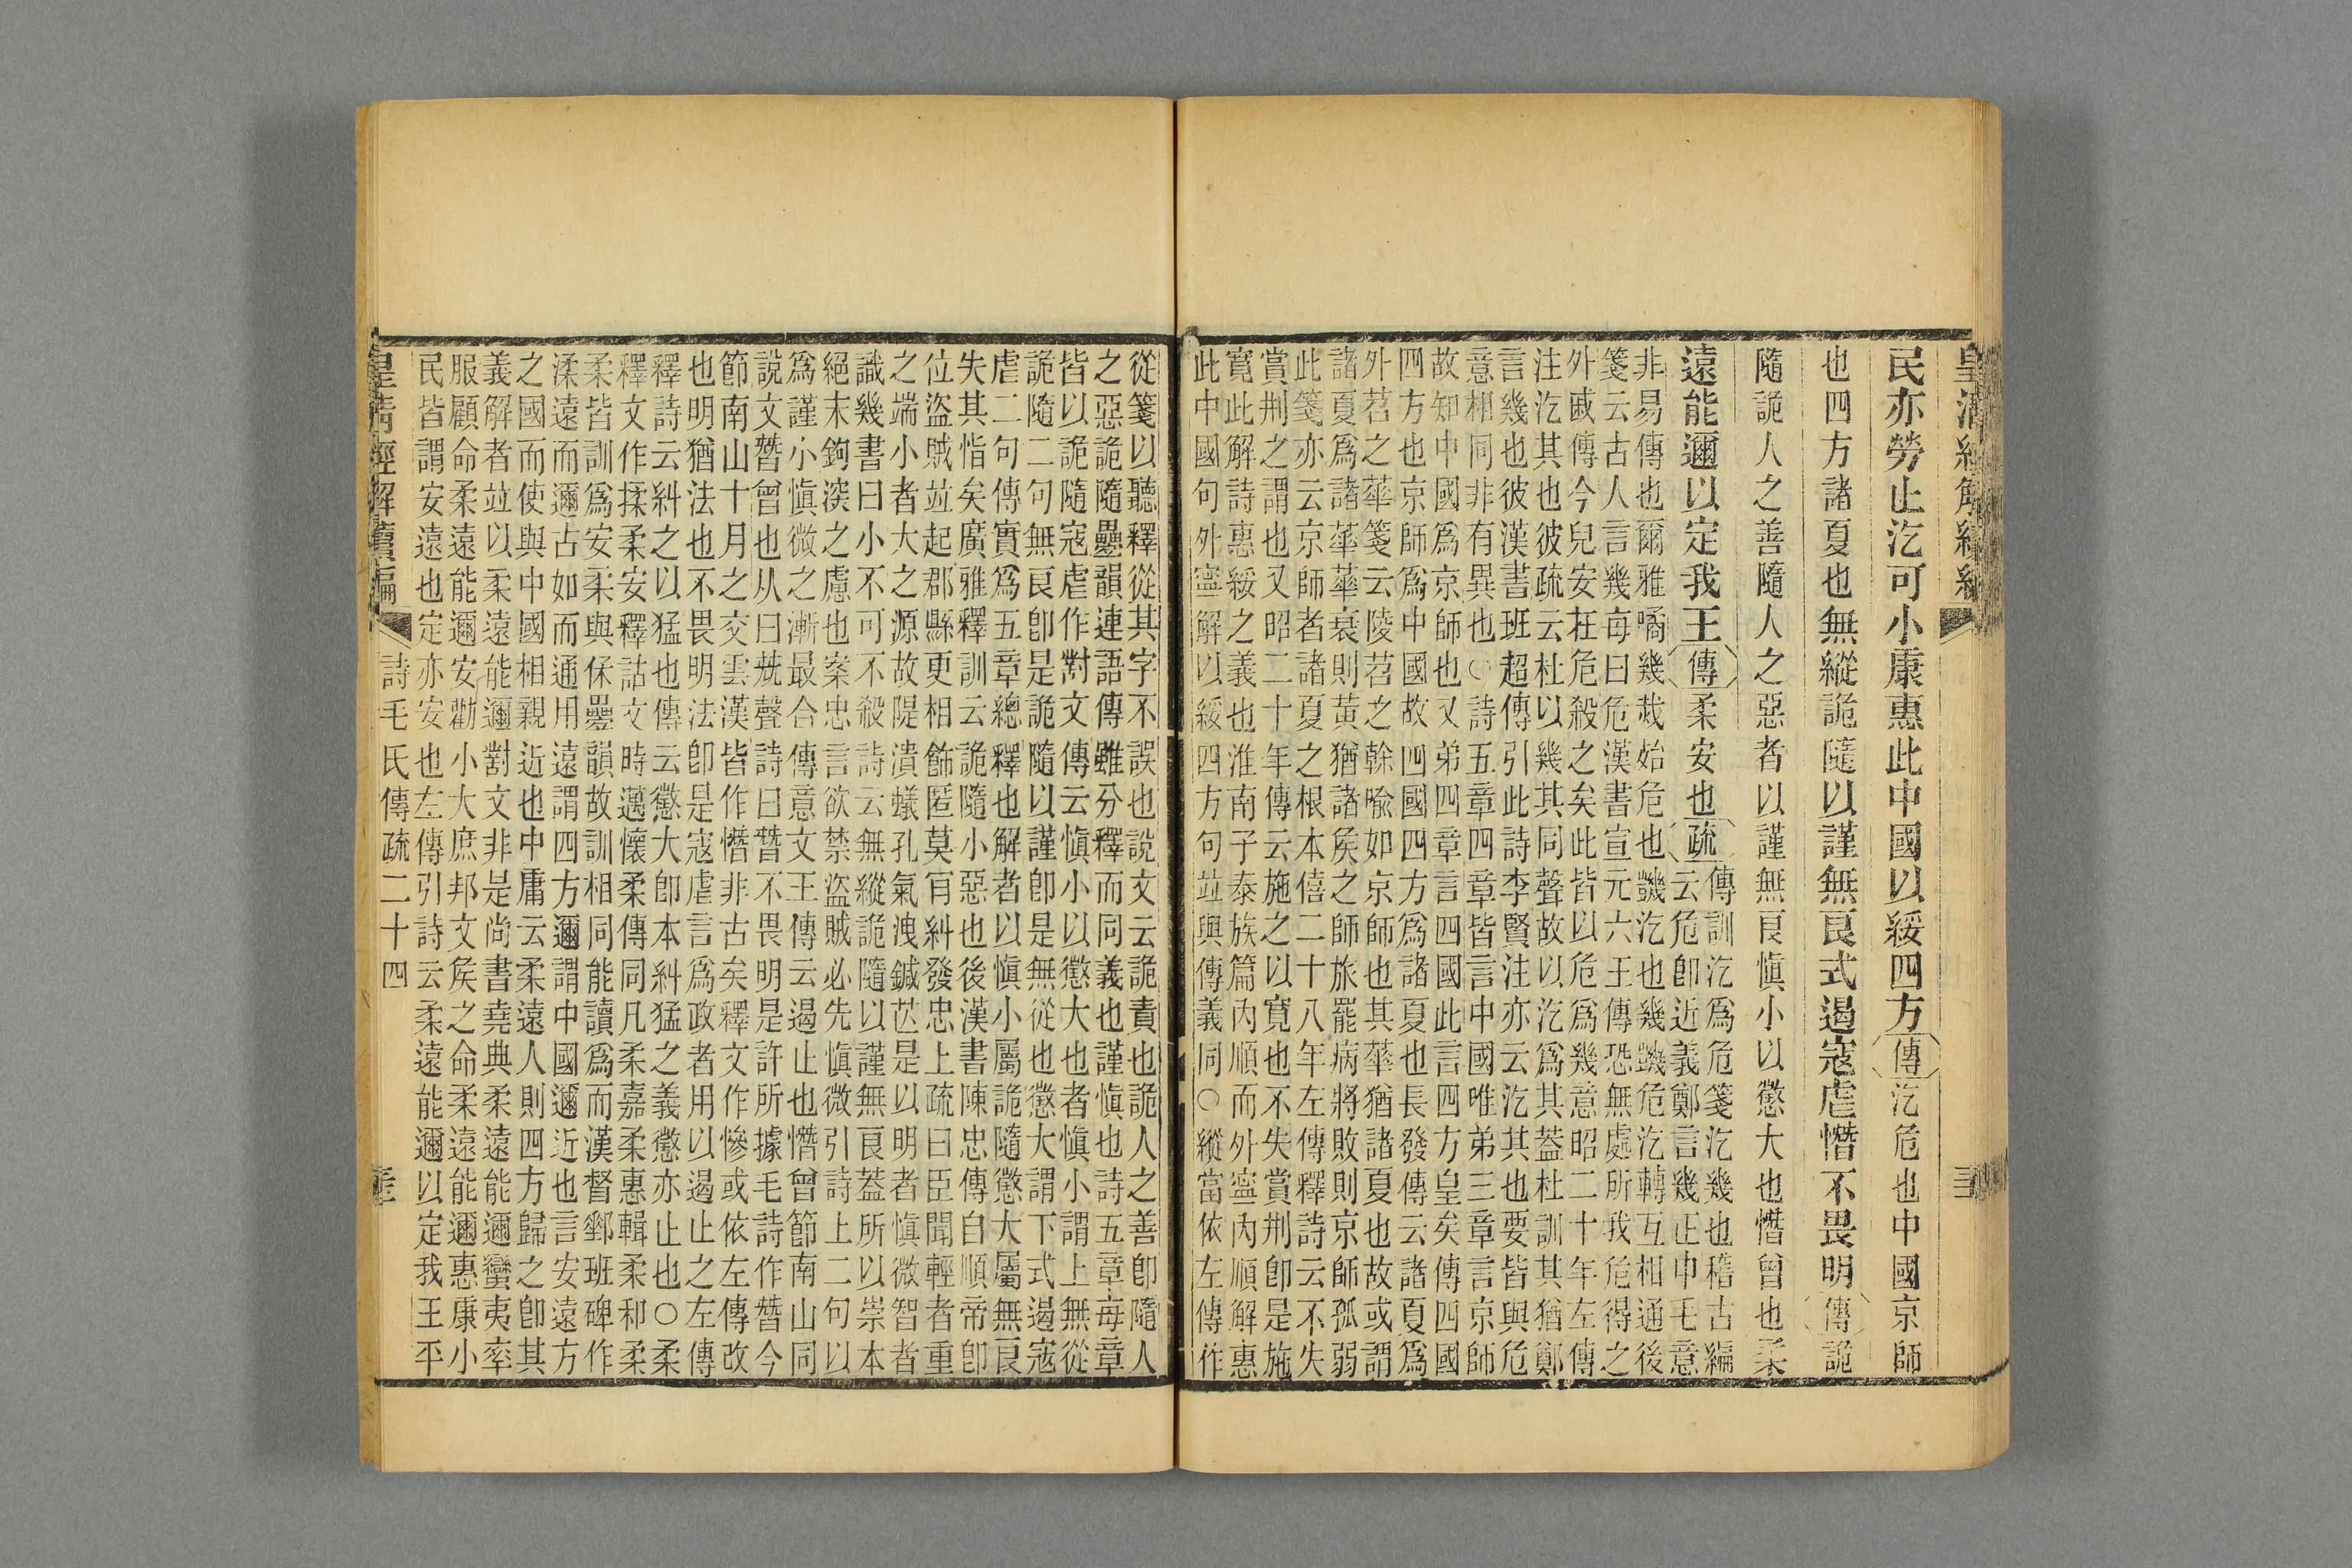 皇清經解續編
民亦勞止汔可小康惠此中國以綏四方傳汔危也中國京師
也四方諸夏也無縱詭隨以謹無良式遏寇虐憯不畏明傳詭
隨詭人之善隨人之惡者以謹無良愼小以懲大也憯曾也柔
遠能邇以定我王傳柔安也疏傳訓汔爲危箋汔幾也稽古編
云危卽近義鄭言幾正申毛意
非易傳也爾雅噊幾烖始危也譏汔也幾譏危汔轉互相通後
箋云古人言幾每曰危漢書宣元六王傳恐無處所我危得之
外戚傳今兒安在危殺之矣此皆以危爲幾意昭二十年左傳
注汔其也彼疏云杜以幾其同聲故以汔爲其葢杜訓其猶鄭
言幾也彼漢書班超傳引此詩李賢注亦云汔其也要皆與危
意相同非有異也○詩五章四章皆言中國唯弟三章言京師
故知中國爲京師也又弟四章言四國此言四方皇矣傳四國
四方也京師爲中國故四國四方爲諸夏也長發傳云諸夏爲
外苕之華箋云陵苕之榦喩如京師也其華猶諸夏也故或謂
諸夏爲諸華華衰則黃猶諸矦之師旅罷病將敗則京師孤弱
此箋亦云京師者諸夏之根本僖二十八年左傳釋詩云不失
賞荆之謂也又昭二十年傳云施之以寬也不失賞荆卽是施
寬此解詩惠綏之義也淮南子泰族篇內順而外寧內順解惠
此中國句外寧解以綏四方句竝與傳義同○縱當依左傳作
從箋以聽釋從其字不誤也說文云詭責也詭人之善卽隨人
之惡詭隨曡韻連語傳雖分釋而同義也謹愼也詩五章每章
皆以詭隨寇虐作對文傳云愼小以懲大也者愼小謂上無從
詭隨二句無良卽是詭隨以謹卽是無從也懲大謂下式遏寇
虐二句傳實爲五章總釋也解者以愼小屬詭隨懲大屬無良
失其恉矣廣雅釋訓云詭隨小惡也後漢書陳忠傳自順帝卽
位盜賊竝起郡縣更相飾匿莫肯糾發忠上疏曰臣聞輕者重
之端小者大之源故隄潰蟻孔氣洩鍼芒是以明者愼微智者
識幾書曰小不可不殺詩云無縱詭隨以謹無良葢所以崇本
絕末鉤深之慮也案忠言欲禁盜賊必先愼微引詩上二句以
爲謹小愼微之漸最合傳意文王傳云遏止也憯曾節南山同
說文朁曾也从曰兓聲詩曰朁不畏明是許所據毛詩作朁今
節南山十月之交雲漢皆作憯非古矣釋文作慘或依左傳改
也明猶法也不畏明法卽是寇虐言爲政者用以遏止之左傳
釋詩云糾之以猛也傳云懲大卽本糾猛之義懲亦止也○柔
釋文作揉柔安釋詁文時邁懷柔傳同凡柔嘉柔惠輯柔和柔
柔皆訓爲安柔與保曡韻故訓相同能讀爲而漢督郵班碑作
渘遠而邇古如而通用遠謂四方邇謂中國邇近也言安遠方
之國而使與中國相親近也中庸云柔遠人則四方歸之卽其
義解者竝以柔遠能邇對文非是尚書堯典柔遠能邇蠻夷率
服顧命柔遠能邇安勸小大庶邦文矦之命柔遠能邇惠康小
民皆謂安遠也定亦安也左傳引詩云柔遠能邇以定我王平
皇清經解續編　詩毛氏傳疏二十四